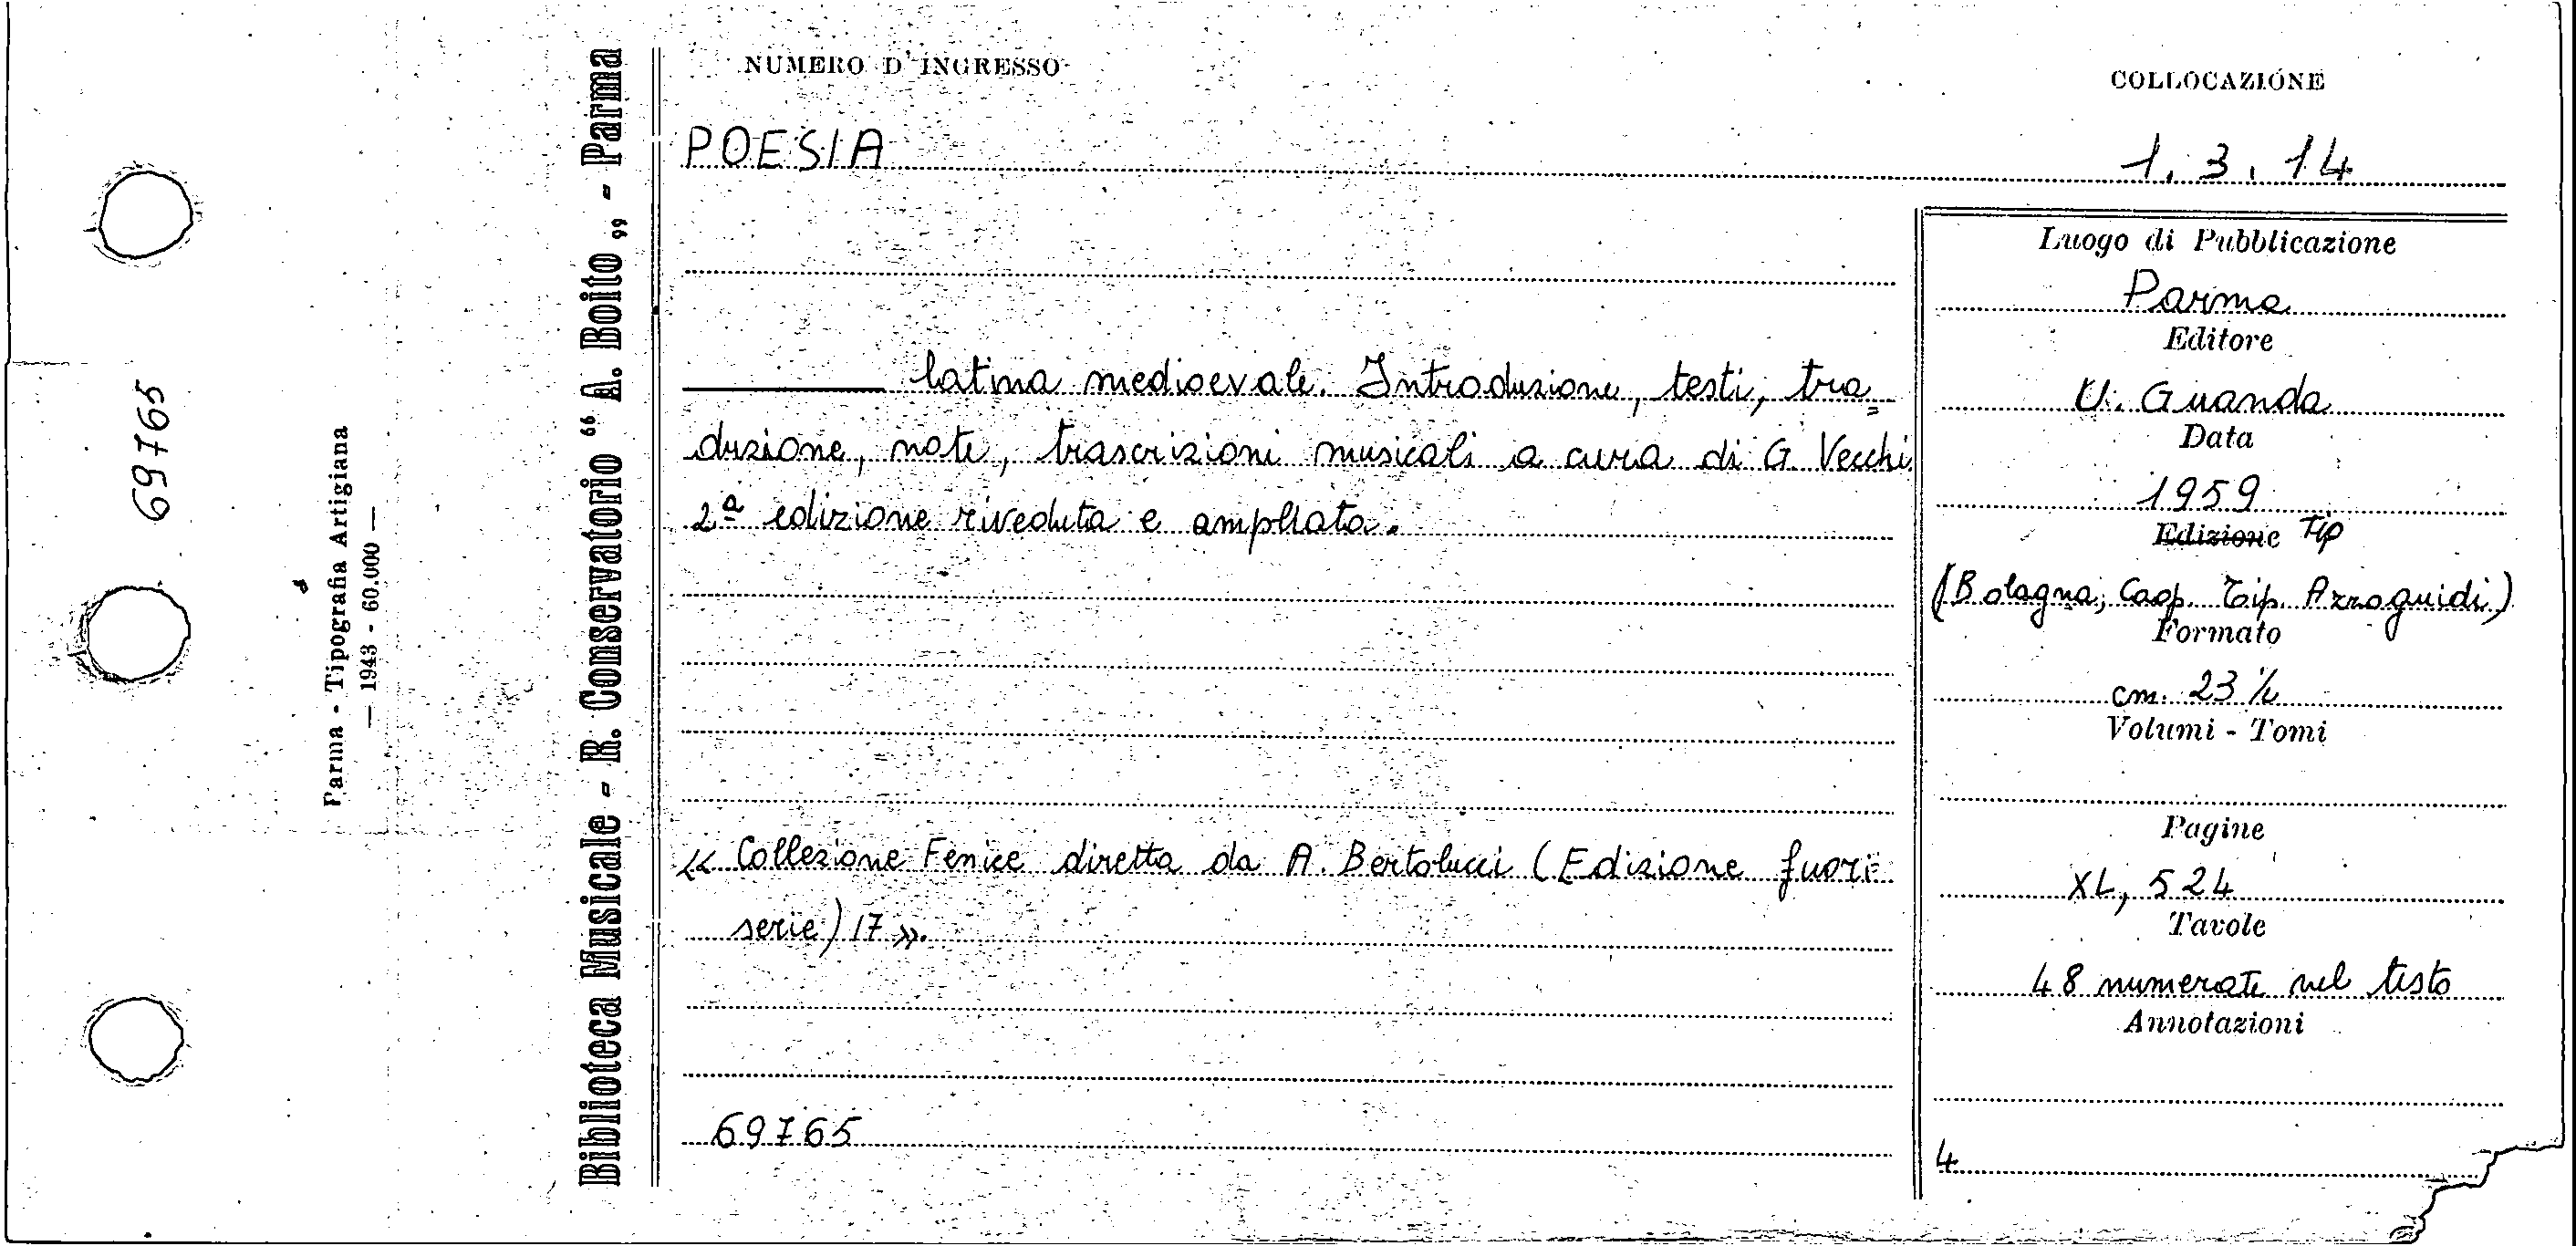 69765
Parma - Tipografia Artigiana
— 1943 - 60.000 —
Biblioteca Musicale - R. Conservatorio “ A. Boito „ - Parma
NUMERO D'INGRESSO
COLLOCAZIONE
POESIA
1.3.14
——— latina medioevale. Introduzione, testi, tra=
duzione, note, trascrizioni musicali a cura di G. Vecchi
2ª edizione riveduta e ampliata.
« Collezione Fenice diretta da A. Bertolucci (Edizione fuori
serie) 17 ».
69765
Luogo di Pubblicazione
Parma
Editore
U. Guanda
Data
1959
Edizione Tip
(Bologna, Coop. Tip. Azzoguidi)
Formato
cm. 23 ½
Volumi - Tomi
Pagine
XL, 524
Tavole
48 numerate nel testo
Annotazioni
4